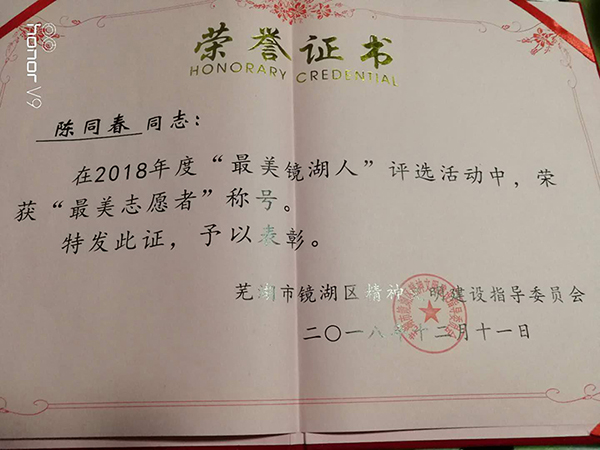 honor V9
荣誉证书
HONORARY CREDENTIAL
陈同春 同志：
在2018年度“最美镜湖人”评选活动中，荣
获“最美志愿者”称号。
特发此证，予以表彰。
芜湖市镜湖区精神文明建设指导委员会
二〇一八年十二月十一日